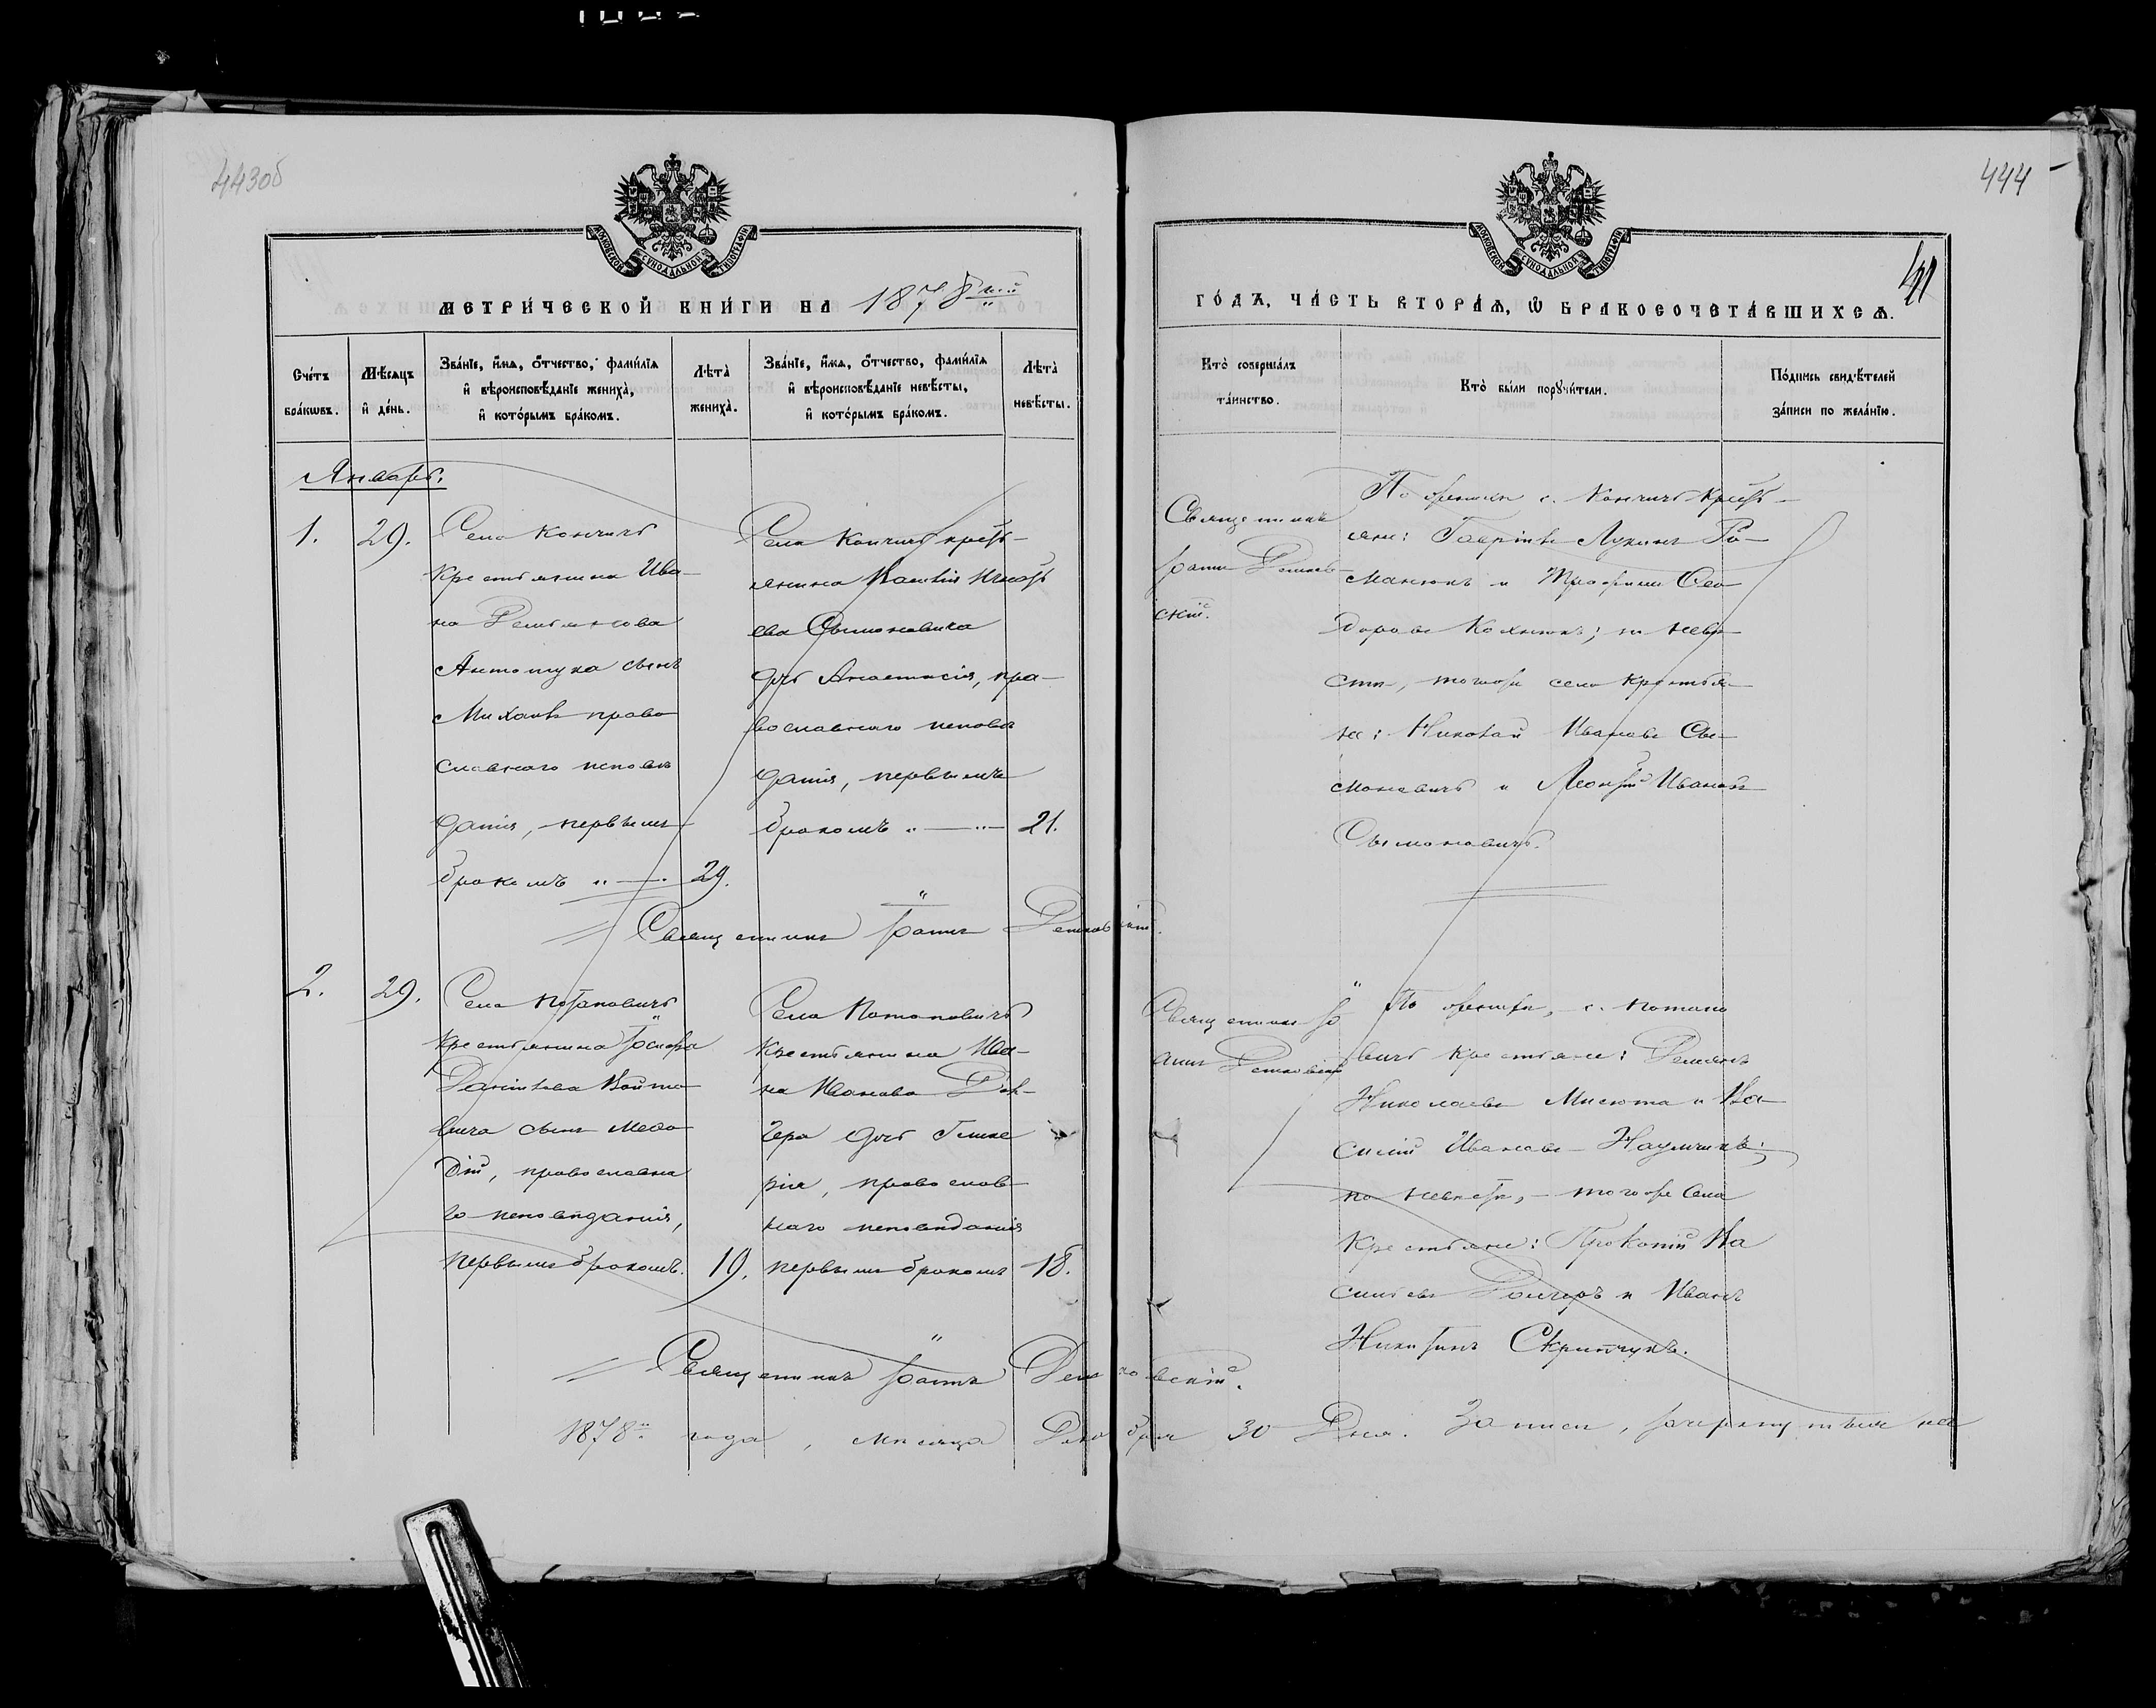 443об
МОСКОВСКОЙ СѴНОДАЛЬНОЙ ТИПОГРАФІИ
МЕТРИ́ЧЕСКОЙ КНИ́ГИ НА 1878 й
Сче́тъ бра́кωвъ.
Мѣ́сяцъ и҆ де́нь.
Зва́нїе, и҆́мѧ, ѻ҆́тчество, фами́лїѧ и҆ вѣроисповѣ́данїе жениха̀, и҆ кото́рымъ бра́комъ.
Лѣ́та̀ жениха̀.
Зва́нїе, и҆́мѧ, ѻ҆́тчество, фами́лїѧ и҆ вѣроисповѣ́данїе невѣ́сты, и҆ кото́рымъ бра́комъ.
Лѣ́та̀ невѣ́сты.
Январь.
1. 29.
Села Кончичъ
Крестьянина Ива-
на Демьянова
Антонука сынъ
Михаилъ право
славнаго исповѣ
данія, первымъ
бракомъ 29.
Села Кончичъ крест-
янина Василія Игнать
ева Сымоновича
дочь Анастасія, пра-
вославнаго исповѣ
данія, первымъ
бракомъ 21.
Священникъ
2. 29.
Села Потаповичъ
Крестьянина Іосифа
Даніилова Войто
вича сынъ Меѳо
дій, православна
го исповѣданія,
первымъ бракомъ. 19.
Села Потаповичъ
Крестьянина Ива-
на Иванова
дочь Глике
рія, православ-
наго исповѣданія
первымъ бракомъ 18.
Священникъ
1878 года, мѣсяца Декабря 30 Дня. Записи,
444
МОСКОВСКОЙ СѴНОДАЛЬНОЙ ТИПОГРАФІИ
41
ГО́ДА, ЧА́СТЬ ВТОРА́Ѧ, Ѡ҆ БРАКОСОЧЕТА́ВШИХСѦ.
Кто̀ соверша́лъ та́инство.
Кто̀ бы́ли порꙋчи́тели.
По́дпись свидѣ́телей за́писи по жела́нїю.
Священникъ
По женихѣ с. Кончичъ крест-
яне: Гавріилъ Лукинъ Ро-
манюкъ и Трофимъ Ѳео
доровъ; по невѣ-
стѣ, тогоже села крестья-
не: Николай Ивановъ Сы-
моновичъ и Леонтій Ивановъ
Сымоновичъ.
Священникъ
По женихѣ, с. Потапо
вичъ крестьяне: Демьянъ
Николаевъ Мисюта и Ва-
силій Ивановъ Наумчикъ;
по невѣстѣ, - тогоже села
Крестьяне: Прокопій Ва
сильевъ и Иванъ
Никитинъ Скрипчукъ.